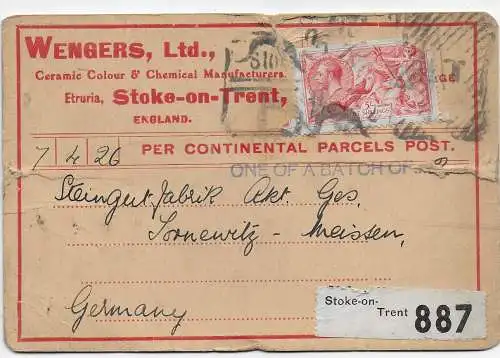 WENGERS, Ltd.,
Ceramic Colour & Chemical Manufacturers
Etruria, Stoke-on-Trent,
ENGLAND.
7/4/26 PER CONTINENTAL PARCELS POST.
ONE OF A BATCH OF 2
Steingutfabrik Akt. Ges,
Sornewitz - Meissen,
Germany
Stoke-on-
Trent 887